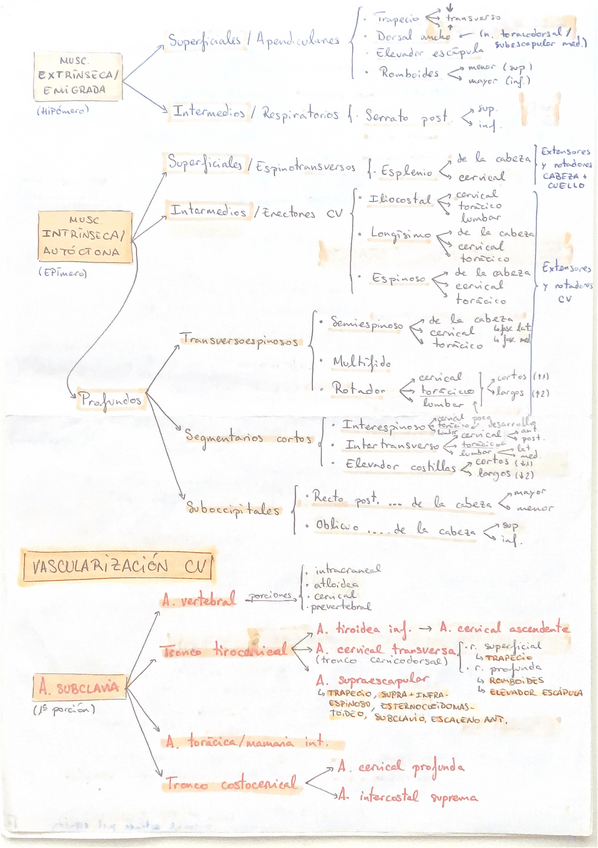 MUSC.
EXTRÍNSECA/
EMIGRADA
(HIPÓMERO)
Superficiales / Apendiculares
· Trapecio
transverso
· Dorsal ancho (n. toracodorsal /
subescapular med.)
· Elevador escápula
· Romboides
menor (sup)
mayor (inf.)
Intermedios / Respiratorios
· Serrato post.
sup.
inf.
MUSC.
INTRÍNSECA/
AUTÓCTONA
(EPÍMERO)
Superficiales / Espinotransversos
· Esplenio
de la cabeza
cervical
Extensores
y rotadores
CABEZA +
CUELLO
Intermedios / Erectores CV
· Iliocostal
cervical
torácico
lumbar
· Longísimo
de la cabeza
cervical
torácico
· Espinoso
de la cabeza
cervical
torácico
Extensores
y rotadores
CV
Profundos
Transversoespinosos
· Semiespinoso
de la cabeza
cervical ↳ fasc lat
torácico ↳ fasc med
· Multífido
· Rotador
cervical
torácico
lumbar
cortos (↑1)
largos (↑2)
Segmentarios cortos
· Interespinoso
cervical poco
torácico desarrollo
lumbar
· Intertransverso
cervical
ant
post.
torácico
lumbar
lat
med
· Elevador costillas
cortos (↓1)
largos (↓2)
Suboccipitales
· Recto post. ... de la cabeza
mayor
menor
· Oblicuo .... de la cabeza
sup
inf.
VASCULARIZACIÓN CV
A. SUBCLAVIA
(1ª porción)
A. vertebral
porciones
· intracraneal
· atloidea
· cervical
· prevertebral
Tronco tirocervical
A. tiroidea inf. → A. cervical ascendente
A. cervical transversa
(tronco cervicodorsal)
· r. superficial
↳ TRAPECIO
· r. profunda
↳ ROMBOIDES
↳ ELEVADOR ESCÁPULA
A. supraescapular
↳ TRAPECIO, SUPRA + INFRA-
ESPINOSO, ESTERNOCLEIDOMAS-
TOIDEO, SUBCLAVIO, ESCALENO ANT.
A. torácica/mamaria int.
Tronco costocervical
A. cervical profunda
A. intercostal suprema